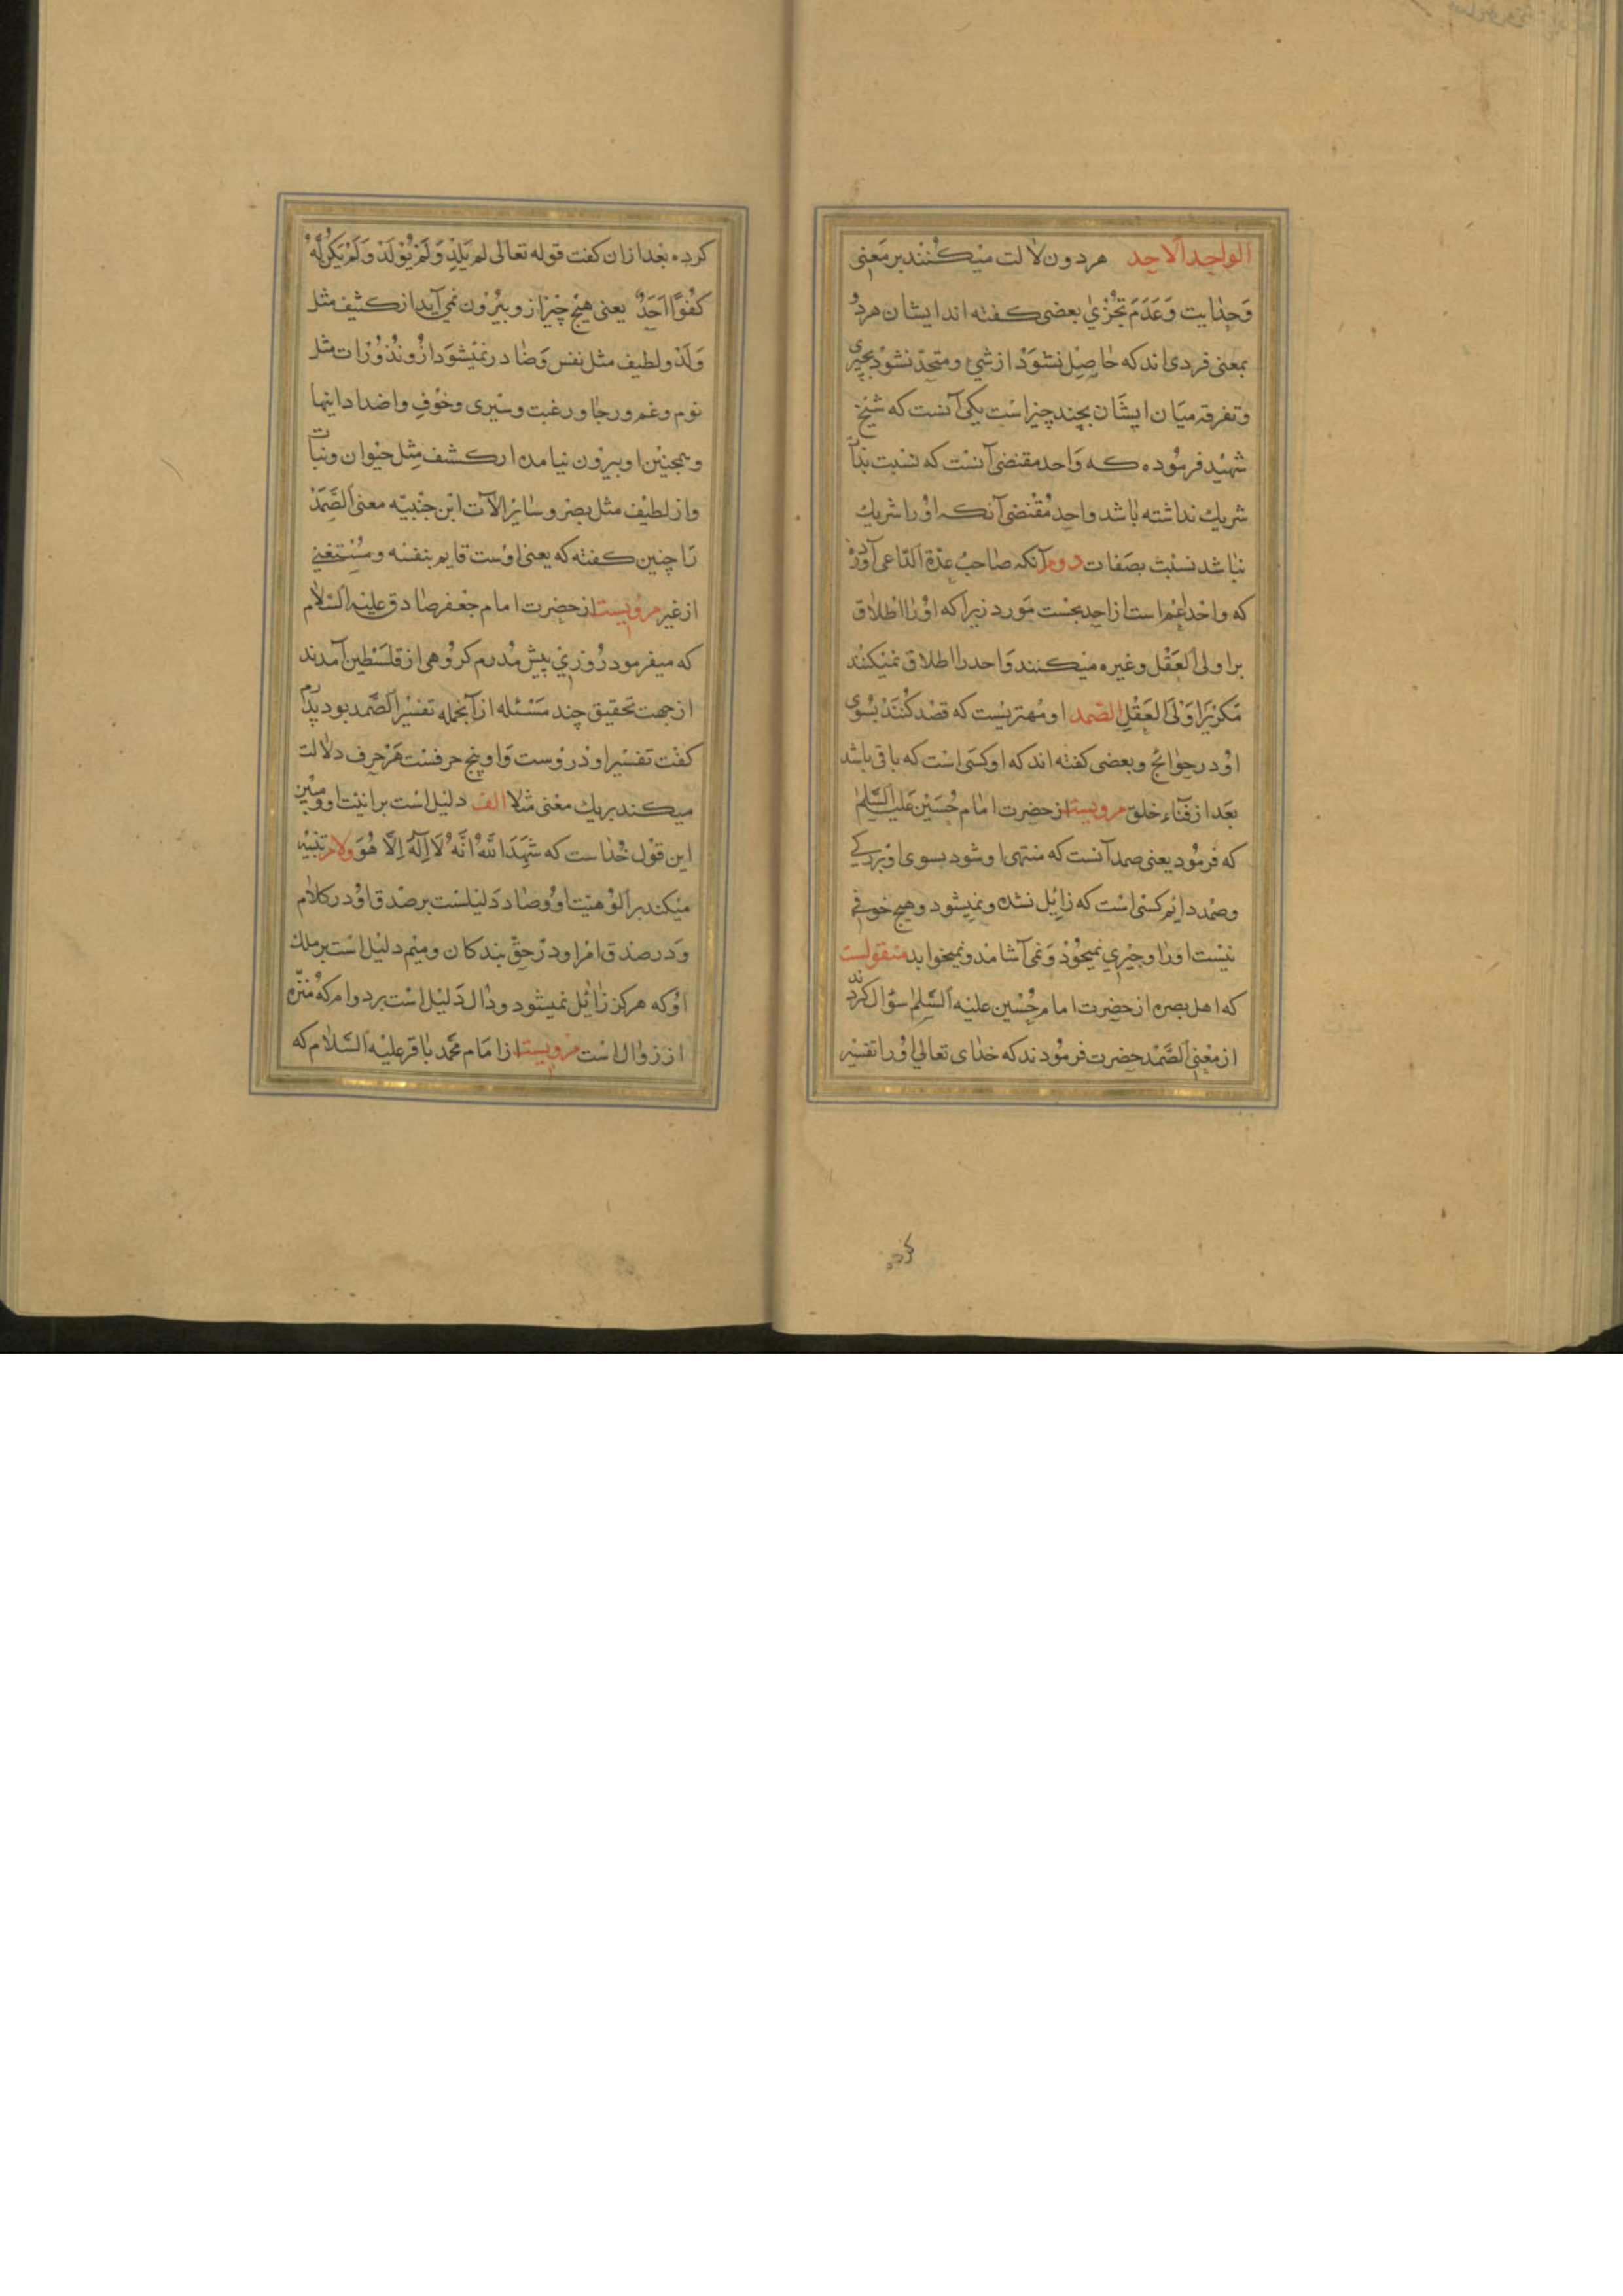 الواحد الاحد هر دون لالت میکنند بر معنی
وحدایت و عدم تجزی بعضی کفته اند ایشان هردو
بمعنی فردی اند که حاصل نشود از شیٔ و متحد نشود بچیزی
و تفرقه میان ایشان بچند چیز است یکی آنست که شیخ
شهید فرموده که واحد مقتضی آنست که نسبت بذات
شریك نداشته باشد واحد مقتضی آنکه او را شریك
نباشد نسبت بصفات دوم آنکه صاحب عدة الداعی آورده
که واحد اعم است از احد بحسب مورد زیرا که او را اطلاق
بر اولی العقل و غیره میکنند و احد را اطلاق نمیکنند
مکر بر اولی العقل الصمد او مهتریست که قصد کنند بسوی
او در حوائج و بعضی کفته اند که او کسی است که باقی باشد
بعد از فناء خلق مرویست از حضرت امام حسین علیه السلم
که فرمود یعنی صمد آنست که منتهی او شود بسوی او بزرکی
و صمد دایم کسی است که زایل نشده و نمیشود و هیچ خوفی
نیست او را و چیزی نمیخورد و نمی آشامد و نمیخوابد منقولست
که اهل بصره از حضرت امام حسین علیه السلم سؤال کردند
از معنی الصمد حضرت فرمودند که خدای تعالی او را تفسیر
کرده
کرده بعد از ان کفت قوله تعالی لم یلد و لم یولد و لم یکن له
کفوا احد یعنی هیچ چیز از و بیرون نمی آید از کثیف مثل
ولد و لطیف مثل نفس و صادر نمیشود ازو نذورات مثل
نوم و غم و رجا و رغبت و سیری و خوف و اضداد اینها
و همچنین او بیرون نیامده از کشف مثل حیوان و نبات
و از لطیف مثل بصر و سایر الآت ابن معنی الصمد
را چنین کفته که یعنی اوست قایم بنفسه و مستغنی
از غیر مرویست از حضرت امام جعفر صادق علیه السلام
که میفرمود روزی پیش پدرم کروهی از فلسطین آمدند
از جهت تحقیق چند مسئله از آنجمله تفسیر الصمد بود پدرم
کفت تفسیر او در وست و او پنج حرفست هر حرف دلالت
میکند بر یك معنی مثلا الف دلیل است بر انیت او و مبین
این قول خداست که شهد الله انه لا اله الا هو و لام تنبیه
میکند بر الوهیت او و صاد دلیلست بر صدق او در کلام
و در صدق امر او در حق بندکان و میم دلیل است بر ملك
او که هرکز زایل نمیشود و دال دلیل است بر دوام که منزه
از زوال است مرویست از امام محمد باقر علیه السلام که